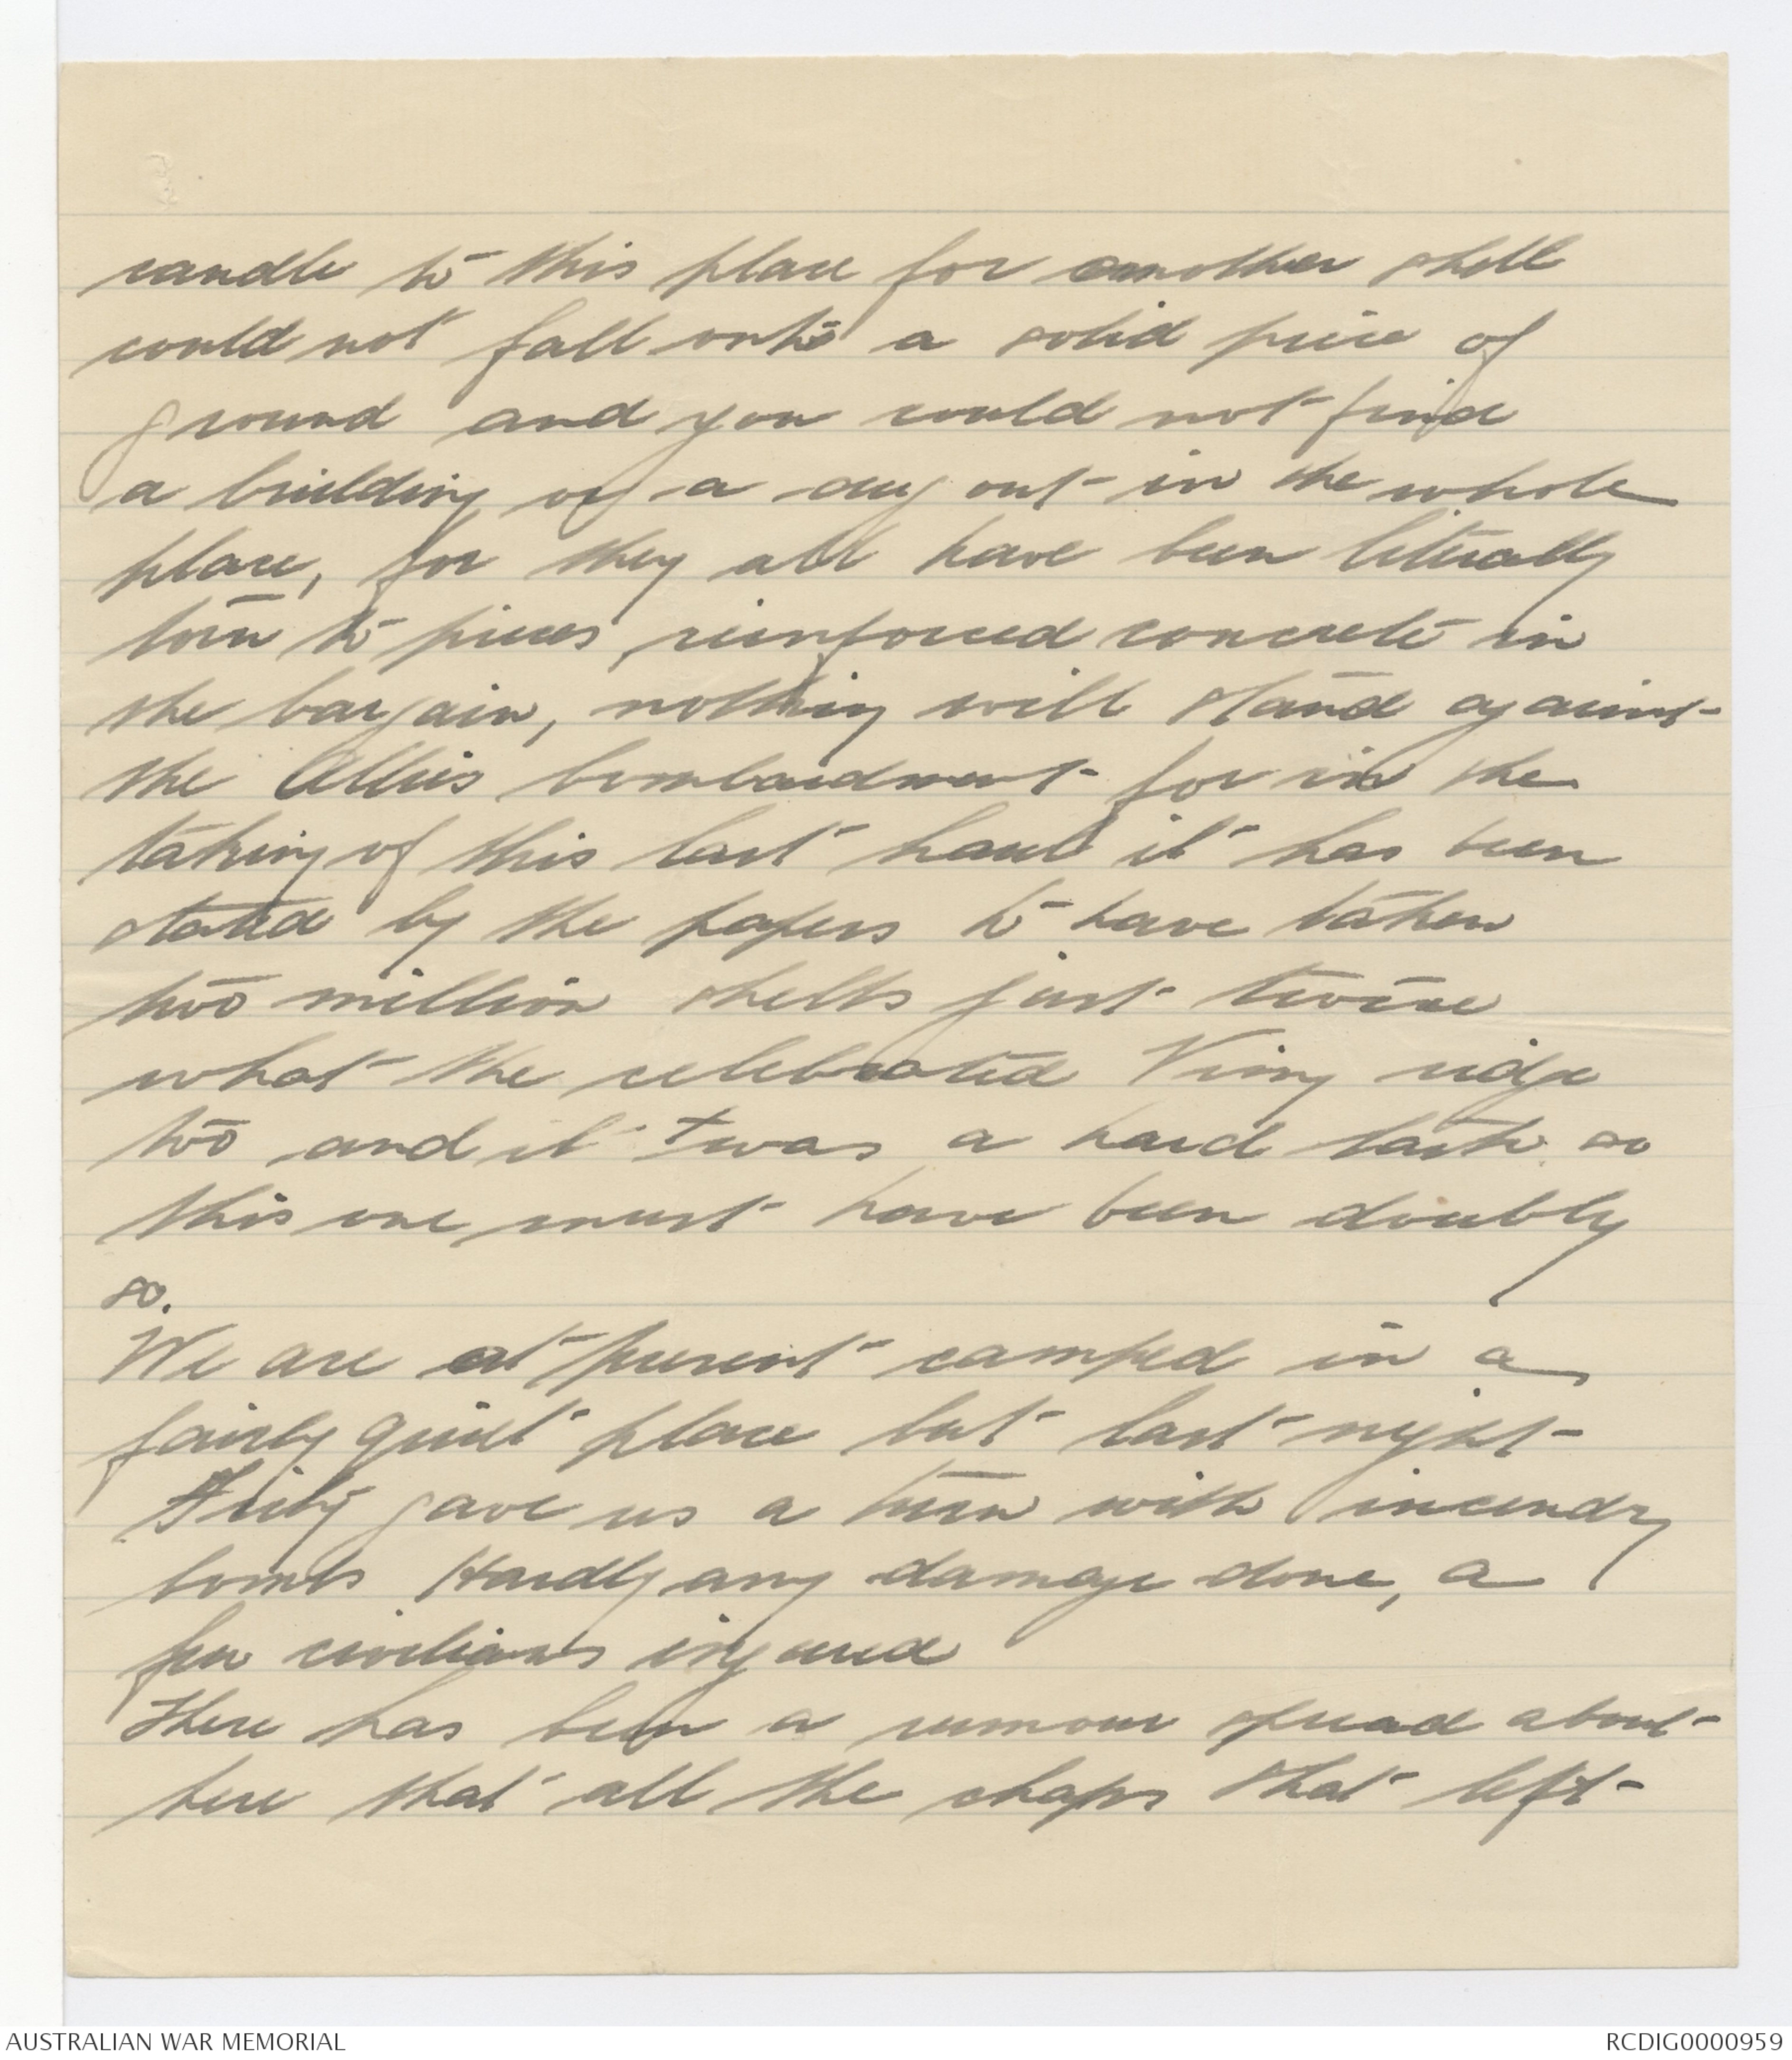 candle to this place for another shell
could not fall onto a solid piece of
ground and you could not find
a building of a dug out in the whole
place, for they all have been literally
torn to pieces, reinforced concrete in
the bargain, nothing will stand against
the Allies bombardment for in the
taking of this last haul it has been
stated by the papers to have taken
two million shells just twice
what the celebrated Vimy ridge
too and it twas a hard task so
this one must have been doubly
so.
We are at present camped in a
fairly quiet place but last night
Fritz gave us a turn with incendry
bombs Hardly any damage done, a
few civilians injured
There has been a rumour spread about
here that all the chaps that left
AUSTRALIAN WAR MEMORIAL
RCDIG0000959